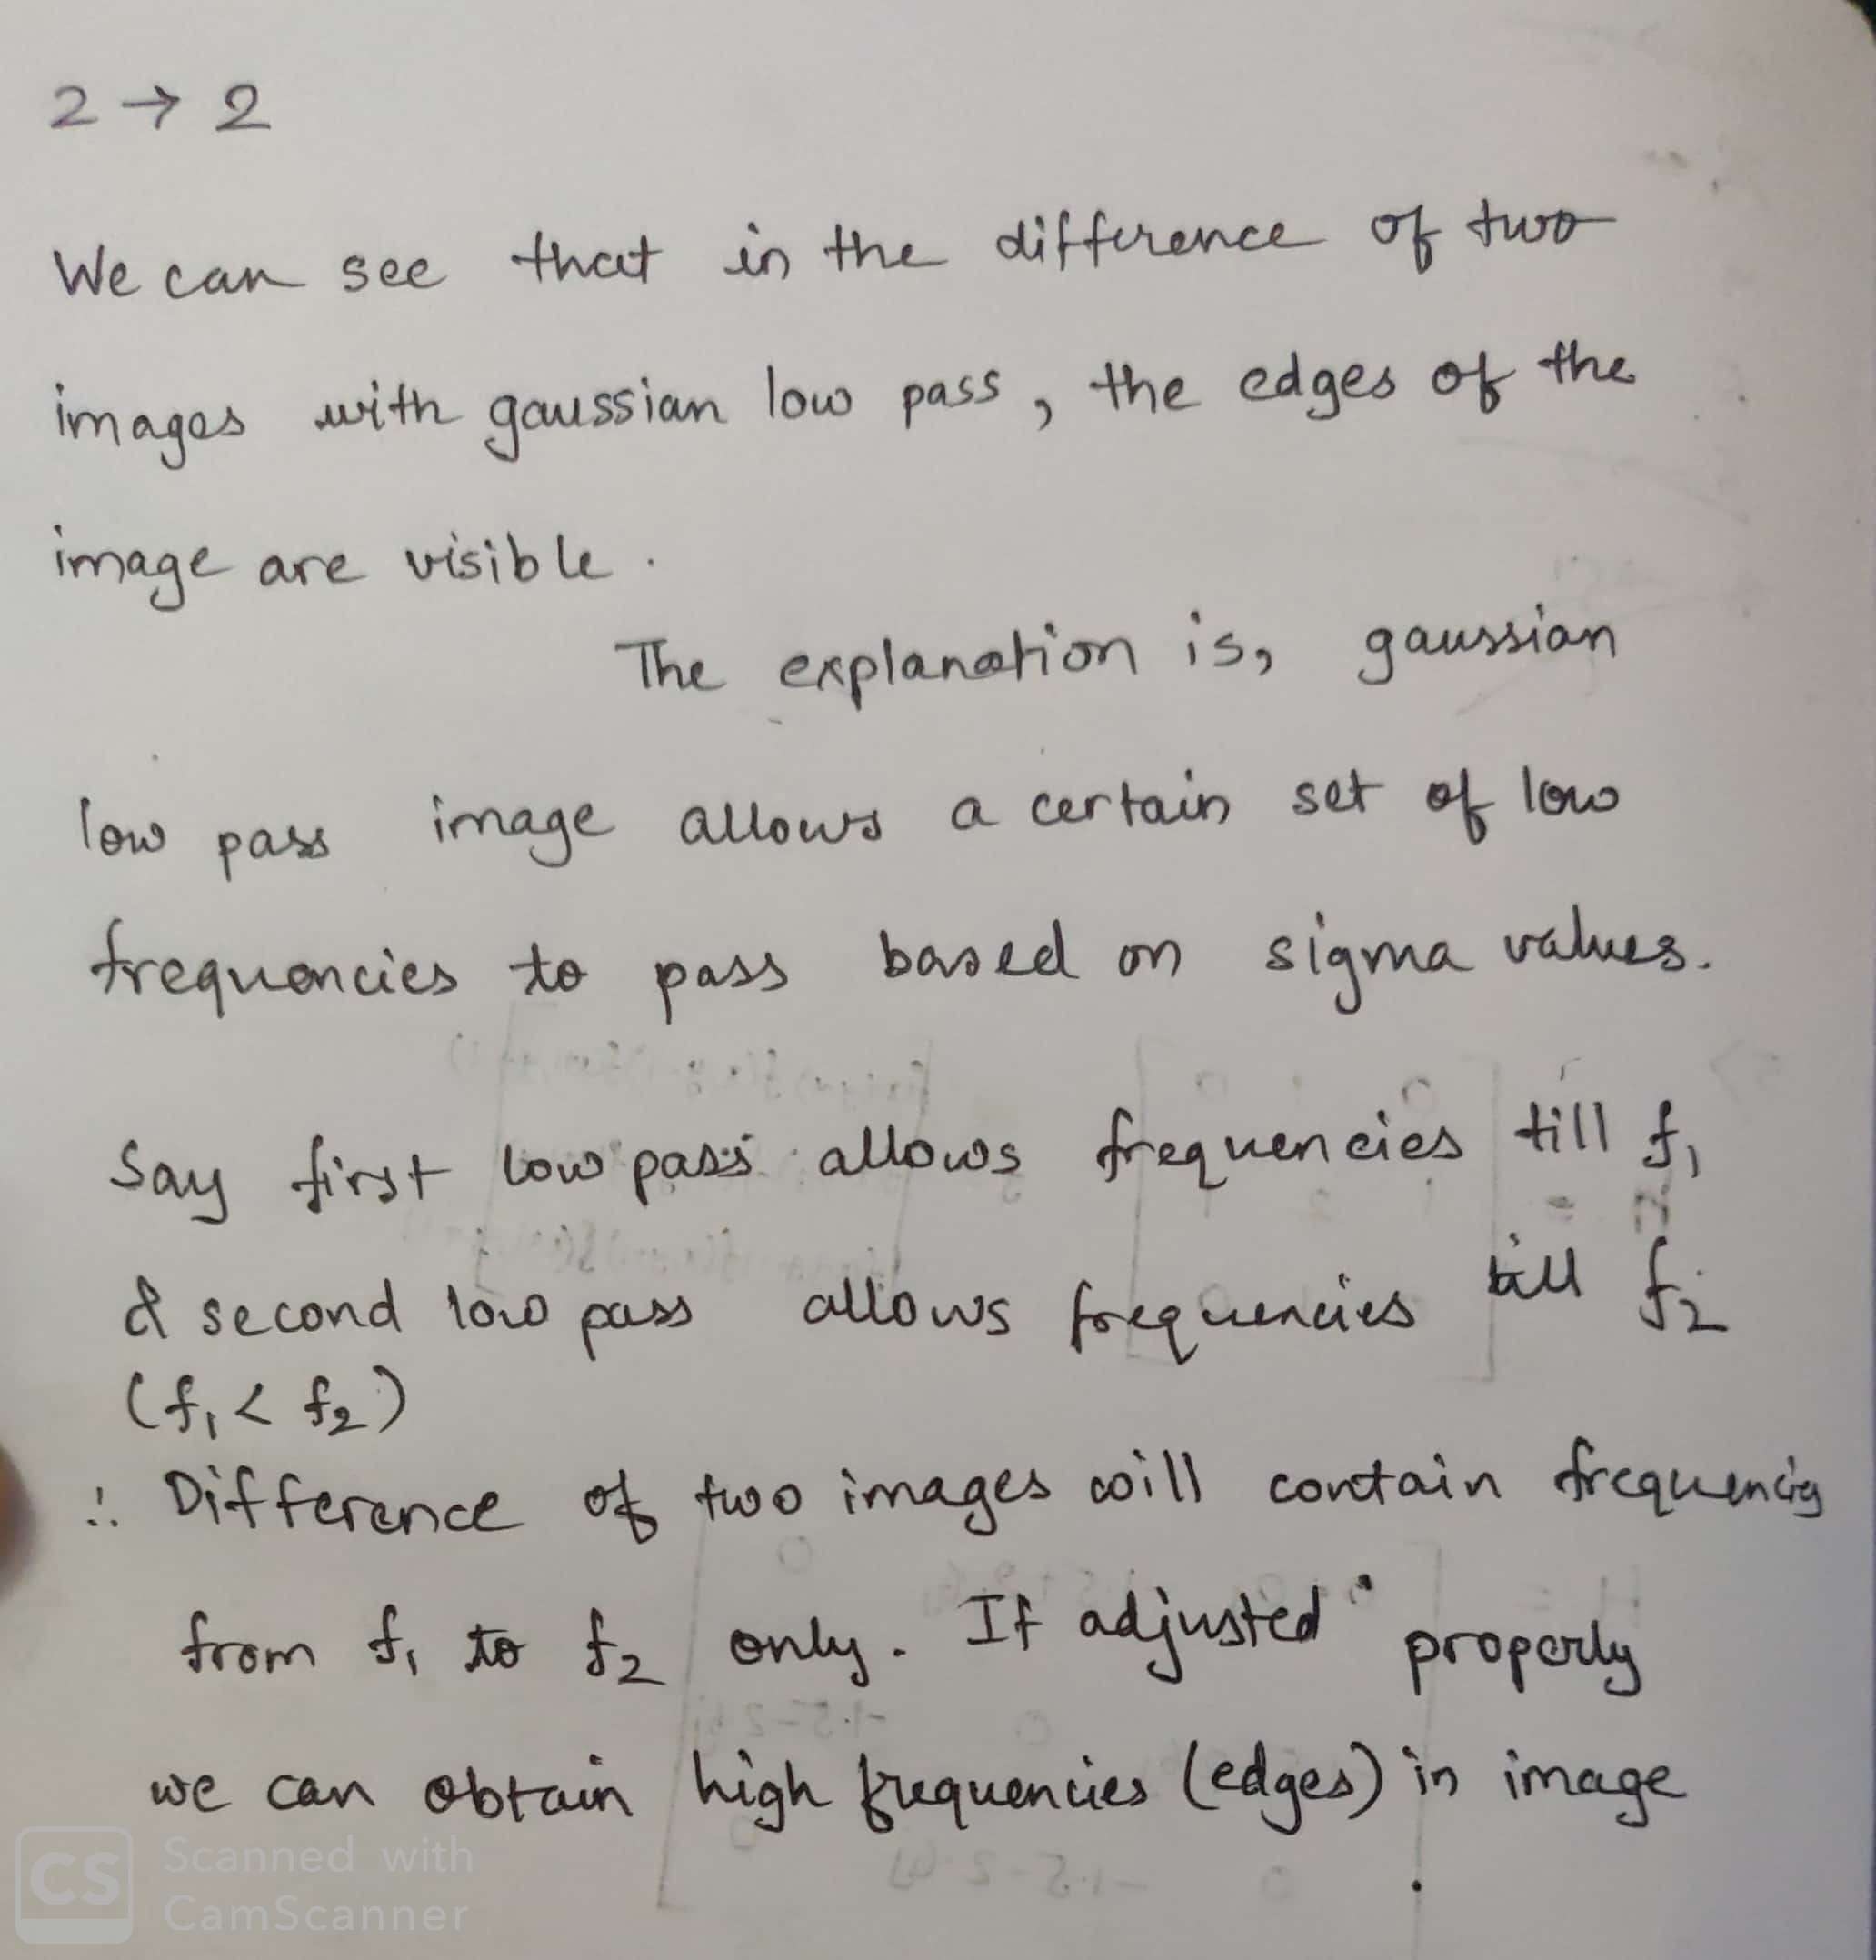 2 → 2
We can see that in the difference of two
images with gaussian low pass, the edges of the
image are visible.
The explanation is, gaussian
low pass image allows a certain set of low
frequencies to pass based on sigma values.
Say first low pass allows frequencies till f₁
& second low pass allows frequencies till f₂
(f₁ < f₂)
∴ Difference of two images will contain frequencies
from f₁ to f₂ only. If adjusted properly
we can obtain high frequencies (edges) in image.
CS Scanned with
CamScanner